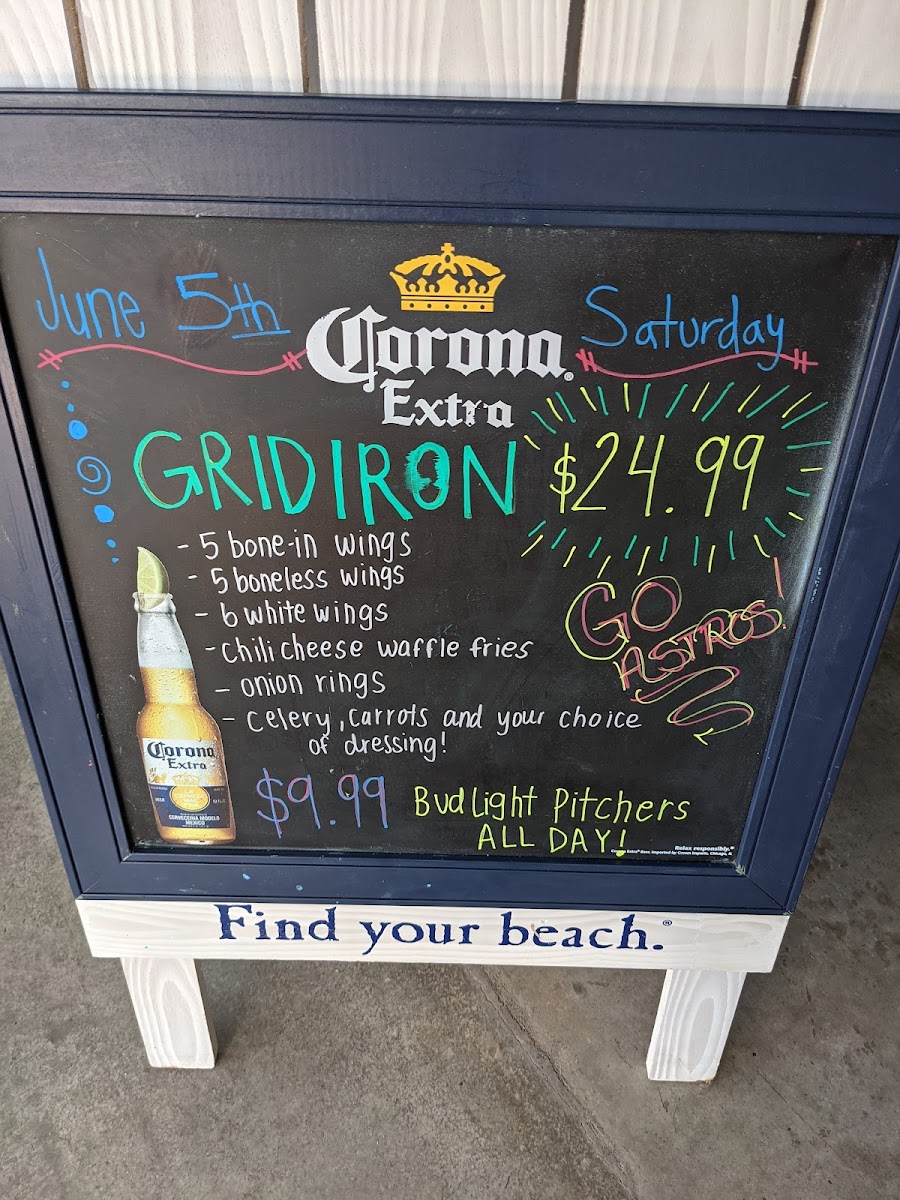 June 5th
Corona
Extra
Saturday
GRIDIRON
$24.99
- 5 bone-in wings
- 5 boneless wings
- 6 white wings
- chili cheese waffle fries
- onion rings
- celery, carrots and your choice
of dressing!
GO
ASTROS!
Corona
Extra
CERVECERIA MODELO
MEXICO
$9.99
Bud Light Pitchers
ALL DAY!
Relax responsibly.®
Find your beach.®